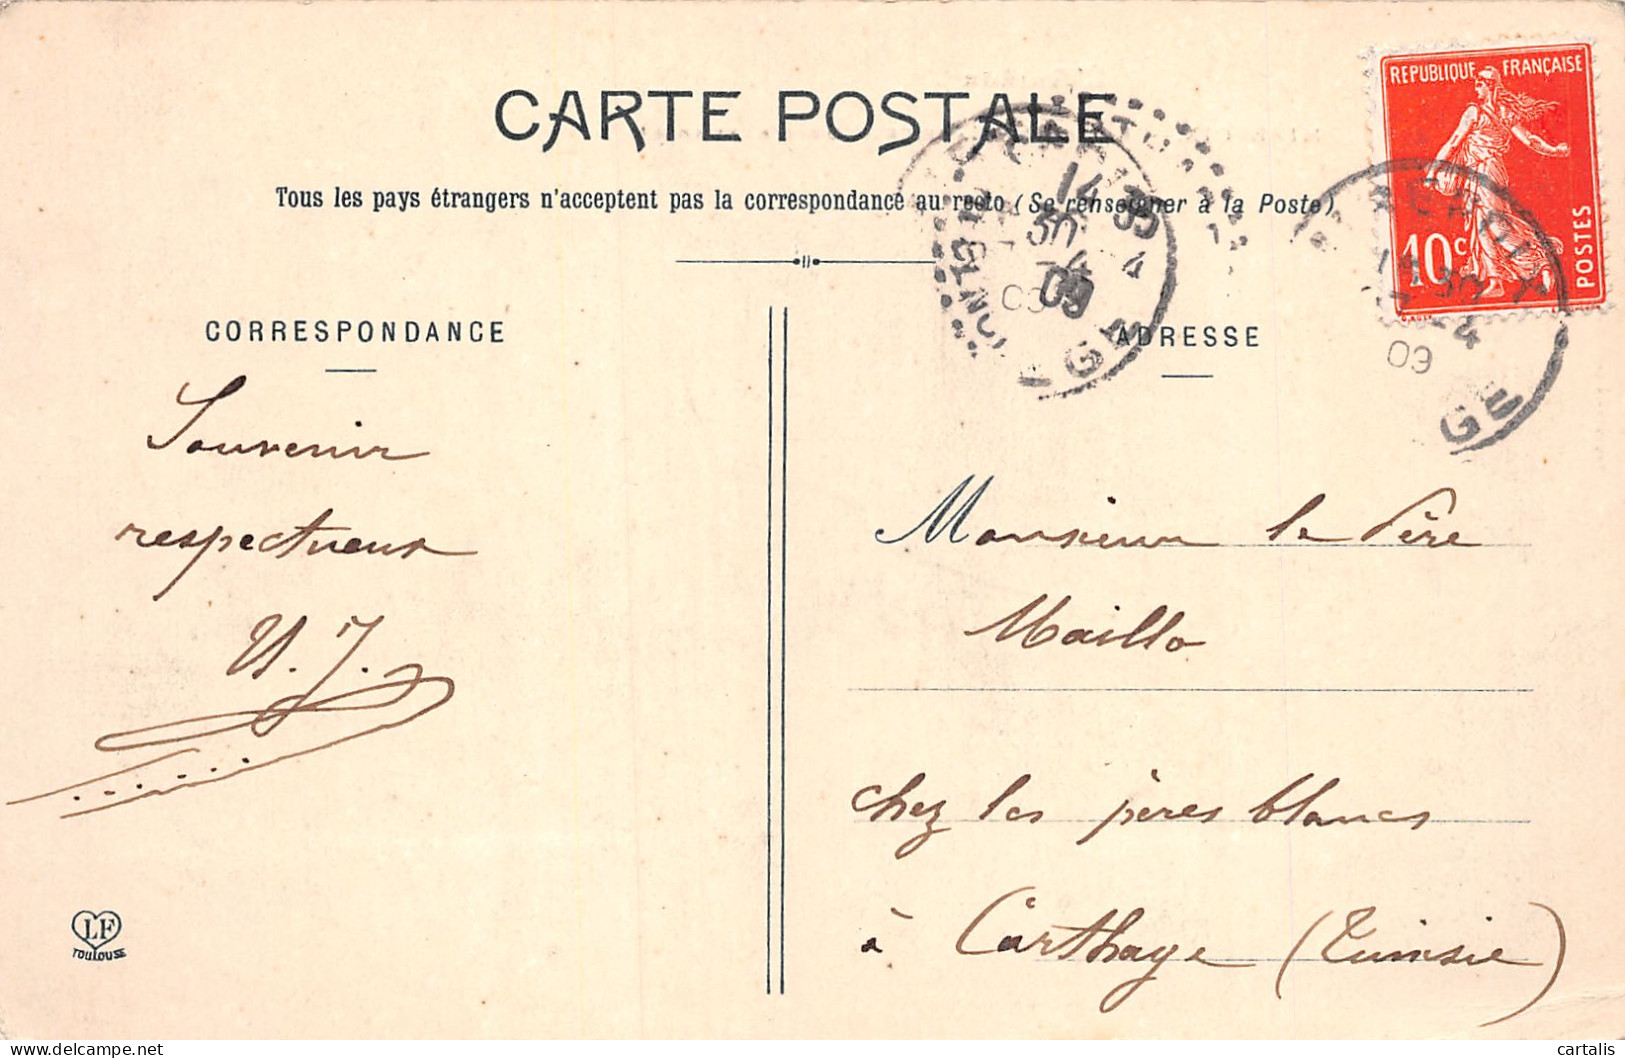 CARTE POSTALE
Tous les pays étrangers n'acceptent pas la correspondance au recto (Se renseigner à la Poste)
REPUBLIQUE FRANÇAISE
10c
POSTES
14 30
09
GE
14 35
30
4
09
CORRESPONDANCE
ADRESSE
Souvenir
respectueux
Monsieur le Père
Maillo
chez les pères blancs
à Carthage (Tunisie)
LF
TOULOUSE
cartalis
delcampe.net